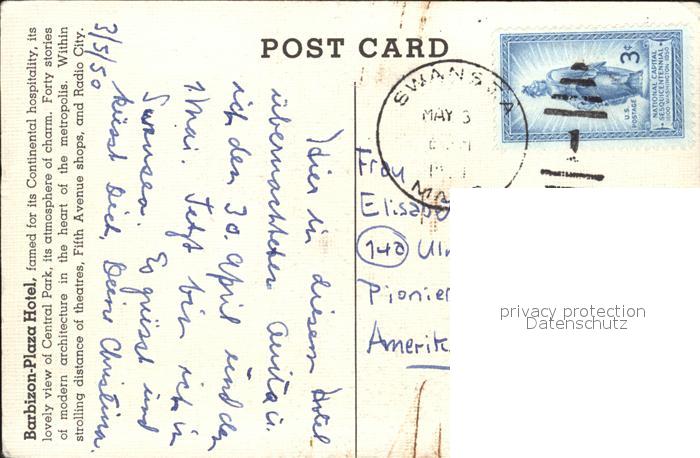 Barbizon-Plaza Hotel, famed for its Continental hospitality, its
lovely view of Central Park, its atmosphere of charm. Forty stories
of modern architecture in the heart of the metropolis. Within
strolling distance of theatres, Fifth Avenue shops, and Radio City.
POST CARD
3/5/50
Hier in diesem Hotel
übernachteten Anita u.
ich den 30. April und den
1. Mai. Jetzt bin ich in
Swansea. Es grüsst und
küsst Dich, Deine Christina.
SWANSEA
MAY 3
3¢
U.S. POSTAGE
NATIONAL CAPITAL
SESQUICENTENNIAL
1800 · WASHINGTON · 1950
Frau
Elisab
(14a) Ulm
Pionier
Amerik
privacy protection
Datenschutz